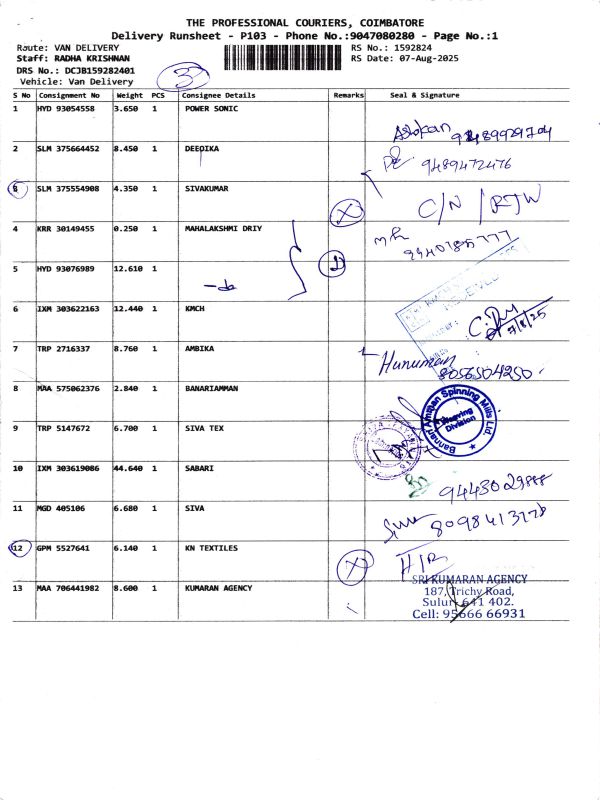 THE PROFESSIONAL COURIERS, COIMBATORE
Delivery Runsheet - P103 - Phone No.:9047080280 - Page No.:1
Route: VAN DELIVERY
RS No.: 1592824
Staff: RADHA KRISHNAN
RS Date: 07-Aug-2025
DRS No.: DCJB159282401
Vehicle: Van Delivery
S No Consignment No Weight PCS Consignee Details Remarks Seal & Signature
1 HYD 93054558 3.650 1 POWER SONIC
Ashokan 9489929704
2 SLM 375664452 8.450 1 DEEPIKA
9489472476
3 SLM 375554908 4.350 1 SIVAKUMAR
X C/N / RTW
4 KRR 30149455 0.250 1 MAHALAKSHMI DRIY
5 HYD 93076989 12.610 1
6 IXM 303622163 12.440 1 KMCH
7/8/25
7 TRP 2716337 8.760 1 AMBIKA
Hunuman 8056504250
8 MAA 575062376 2.840 1 BANARIAMMAN
Bannari Amman Spinning Mills Ltd.
Weaving Division
9 TRP 5147672 6.700 1 SIVA TEX
10 IXM 303619086 44.640 1 SABARI
9443029888
11 MGD 405106 6.680 1 SIVA
8098413778
12 GPM 5527641 6.140 1 KN TEXTILES
X
13 MAA 706441982 8.600 1 KUMARAN AGENCY
SRI KUMARAN AGENCY
187, Trichy Road,
Sulur - 641 402.
Cell: 95666 66931